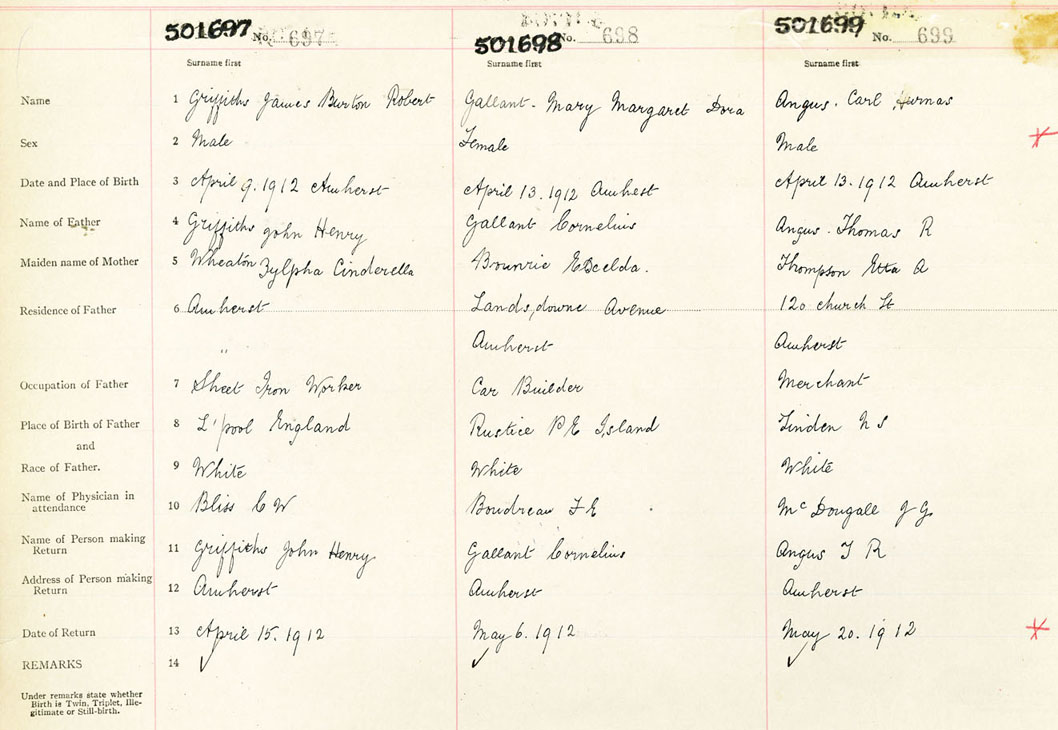 501697 No. 697 501698 No. 698 501699 No. 699
Surname first Surname first Surname first
Name 1 Griffiths James Burton Robert Gallant - Mary Margaret Dora Angus. Carl
Sex 2 Male Female Male
Date and Place of Birth 3 April 9. 1912 Amherst April 13. 1912 Amhest April 13. 1912 Amherst
Name of Father 4 Griffiths John Henry Gallant Cornelius Angus. Thomas R
Maiden name of Mother 5 Wheaton Zylpha Cinderella Thompson Etta A
Residence of Father 6 Amherst Landsdowne Avenue 120 church St
" Amherst Amherst
Occupation of Father 7 Sheet Iron Worker Car Builder Merchant
Place of Birth of Father 8 L'pool England Rustice P E Island Linden N S
and
Race of Father. 9 White White White
Name of Physician in
attendance 10 Bliss C W Boudreau F E McDougall J G.
Name of Person making
Return 11 Griffiths John Henry Gallant Cornelius Angus T R
Address of Person making
Return 12 Amherst Amherst Amherst
Date of Return 13 April 15. 1912 May 6. 1912 May 20. 1912
REMARKS 14 ✓ ✓ ✓
Under remarks state whether
Birth is Twin, Triplet, Ille-
gitimate or Still-birth.